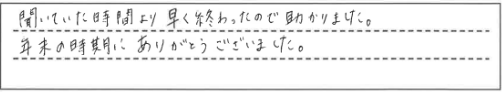 聞いていた時間より早く終わったので助かりました。
年末の時期にありがとうございました。